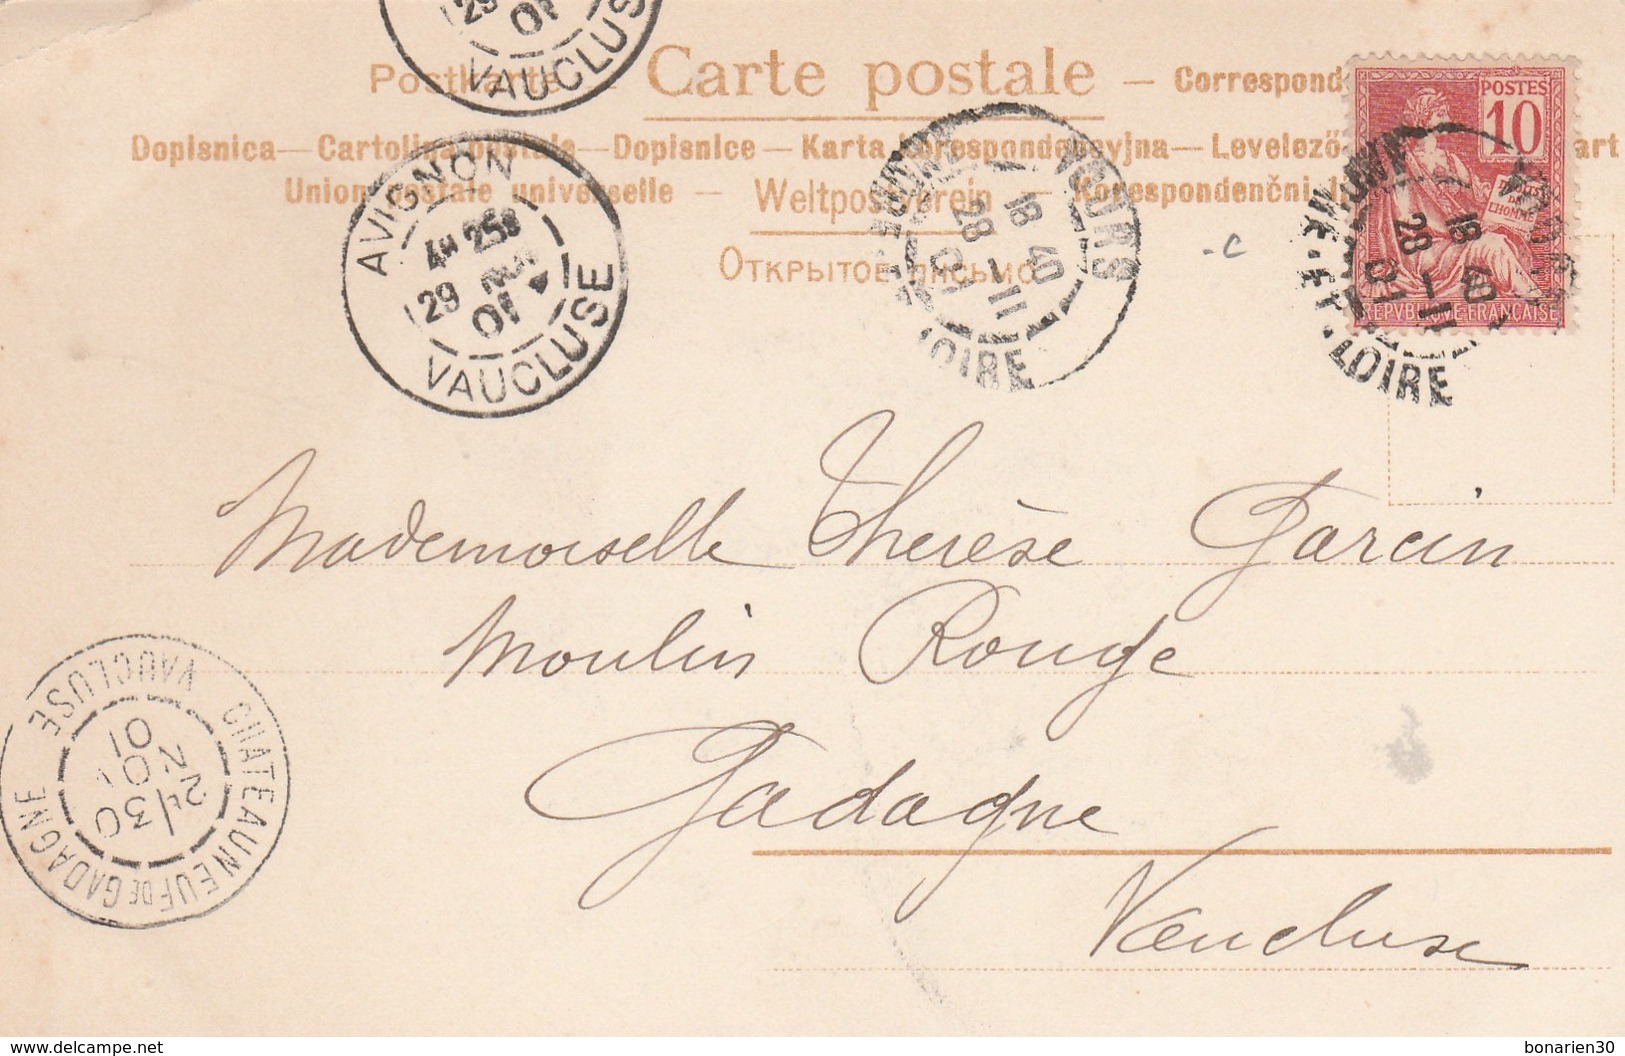 29
01
VAUCLUS
Postkarte – Carte postale – Correspond
POSTES
10
Dopisnica — Cartolina postale — Dopisnice — Karta korespondencyjna — Levelező- art
Union postale universelle – Weltpostverein – Korespondenčni l
Открытое письмо
AVIGNON
4H 25
29 NOV
01
VAUCLUSE
TOURS
18 40
28 -11
01
INDRE-ET-LOIRE
18 40
28 -11
01
-ET-LOIRE
DROITS DE L'HOMME
REPVBLIQVE FRANÇAISE
-c
Mademoiselle Thérèse Garcin
Moulin Rouge
Gadagne
Vaucluse
CHATEAUNEUF DE GADAGNE
7/30
29
NOV
01
VAUCLUSE
www.delcampe.net
bonarien30